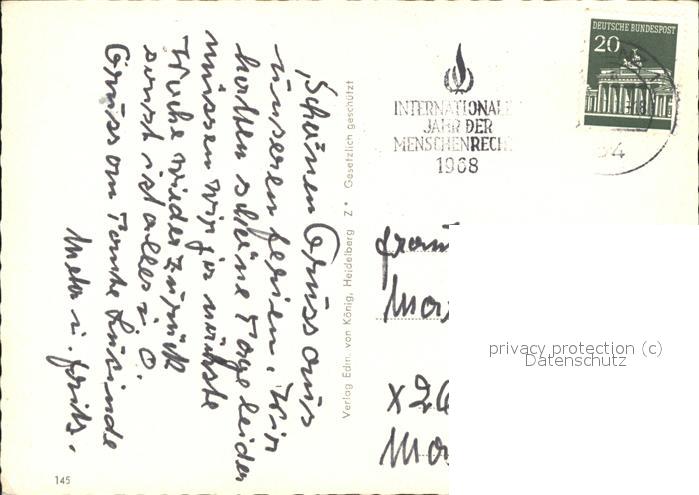 Schönen Gruss aus
unseren Ferien. Wir
hatten schöne Tage leider
müssen wir ja nächste
Woche wieder zurück
sonst ist alles i. O.
Gruss an Tante Luisinde
Meta u. Fritz.
145
Verlag Edm. von König, Heidelberg Z* Gesetzlich geschützt
INTERNATIONALE
JAHR DER
MENSCHENRECH
1968
DEUTSCHE BUNDESPOST
20
Frau
x 26
privacy protection (c)
Datenschutz